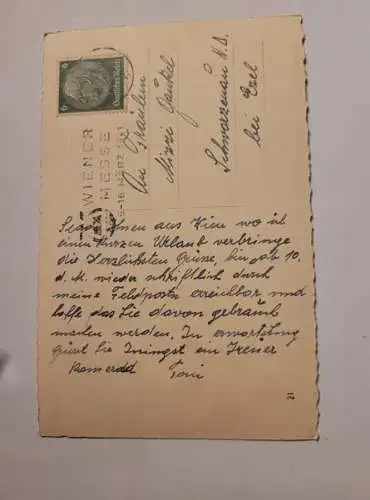 6
Deutsches Reich
WIENER
MESSE
9-16 MÄRZ 1941
An Fräulein
Mizzi
Schwarzenau N.D.
bei
Ihnen aus Wien wo ich
einen kurzen Urlaub verbringe
die Herzlichsten Grüsse, bin ab 10.
d. M. wieder schriftlich durch
meine Feldpostnr erreichbar und
hoffe das Sie davon gebrauch
machen werden. In erwartung
grüsst Sie Innigst ein Treuer
Kamerad Toni
21